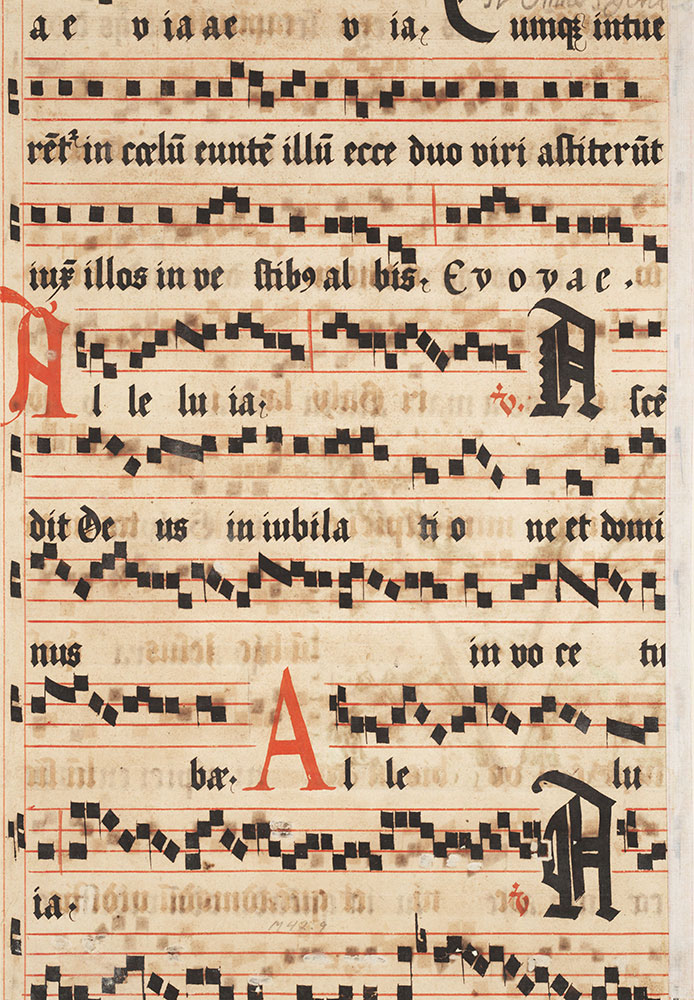 a e v ia ae v ia. Cumqꝫ intue
rēt᷑ in cœlū euntē illū ecce duo viri astiterūt
iuxͣ illos in ve stibꝯ al bis. E v o v a e .
Al le lu ia. ℣. A scē
dit De us in iubila ti o ne et domi
nus in vo ce tu
bæ. Al le lu
ia. ℣. A
M42.9